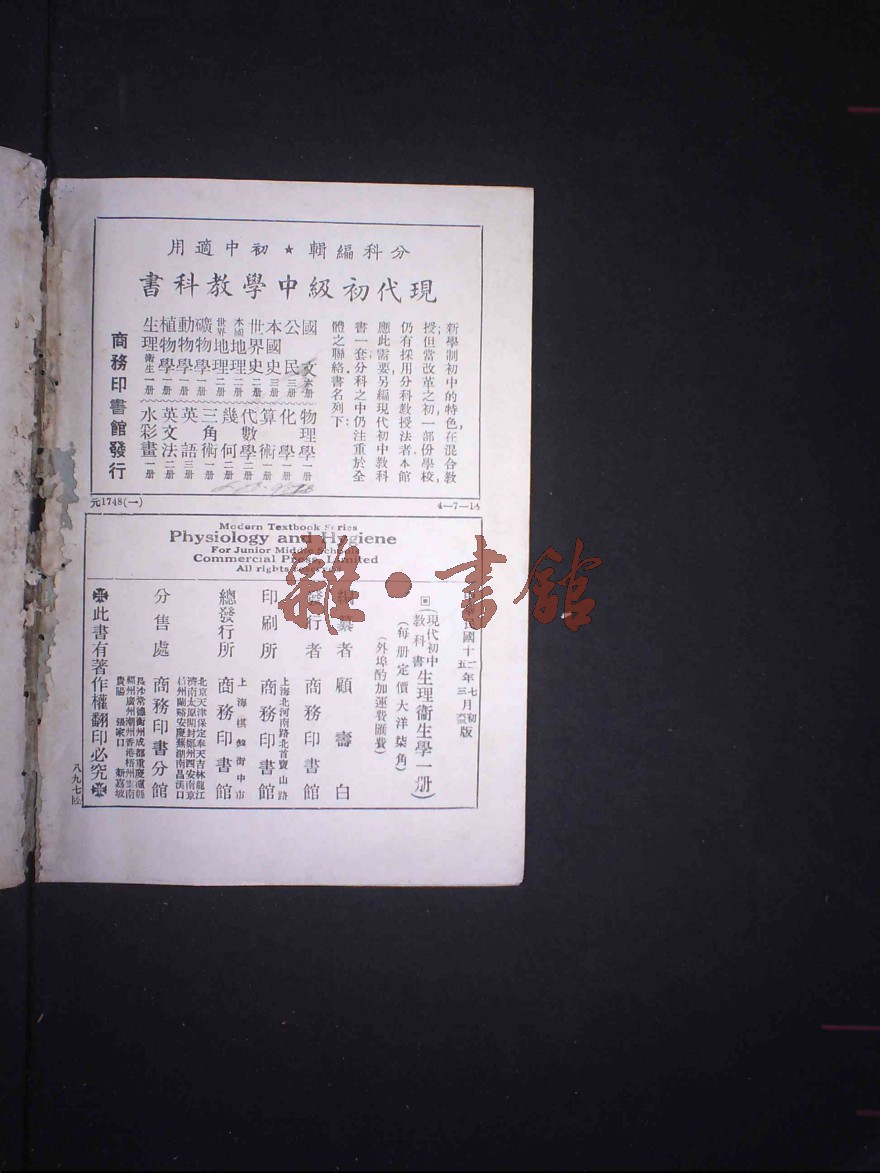 分科編輯★初中適用
現代初級中學教科書
新學制初中的特色,在混合教
授;但當改革之初,一部份學校,
仍有採用分科教授法者.本館
應此需要,另編現代初中教科
書一套,分科之中仍注重於全
體之聯絡.書名列下:
國文 六册
公民 三册
本國史 三册
世界史 二册
本國地理 二册
世界地理 二册
礦物學 一册
動物學 一册
植物學 一册
生理衞生 一册
物理學 一册
化學 一册
算術 一册
代數學 二册
幾何 二册
三角術 一册
英語 三册
英文法 二册
水彩畫 一册
商務印書館發行
元1748(一)
4—7—14
Modern Textbook Series
Physiology and Hygiene
For Junior Middle Schools
Commercial Press, Limited
All rights
國十二年七月初版
(現代初中教科書 生理衞生學一册)
(每册定價大洋柒角)
(外埠酌加運費匯費)
編纂者 顧壽白
發行者 商務印書館
印刷所 上海北河南路北首寶山路 商務印書館
總發行所 上海棋盤街中市 商務印書館
分售處 商務印書分館
北京天津保定奉天吉林龍江
濟南太原開封鄭州西安南京
杭州蘭谿安慶蕪湖南昌漢口
長沙常德衡州成都重慶瀘縣
福州廣州潮州香港梧州雲南
貴陽 張家口 新嘉坡
此書有著作權翻印必究
八九七
雜·書館